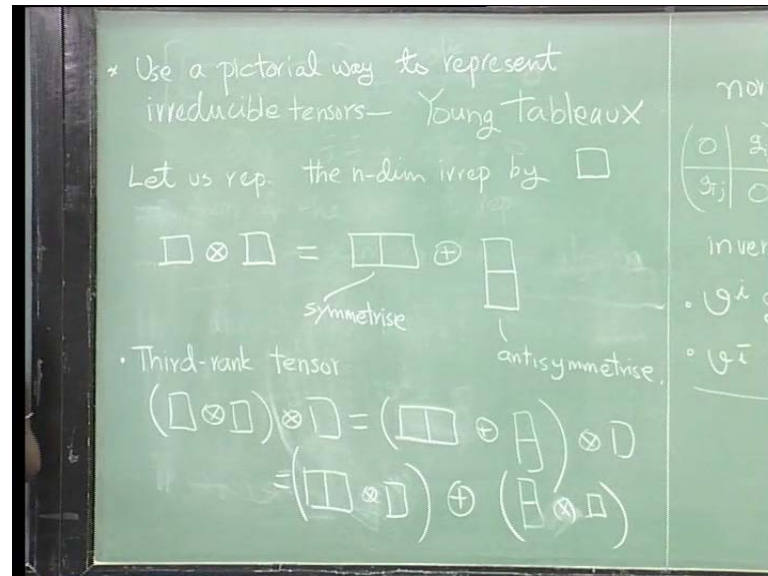 * Use a pictorial way to represent
irreducible tensors— Young Tableaux
Let us rep. the n-dim irrep by □
□ ⊗ □ = □□ ⊕
symmetrise
antisymmetrise.
• Third-rank tensor
(□ ⊗ □) ⊗ □ = (□□ ⊕ ) ⊗ □
= (□□ ⊗ □) ⊕ ( ⊗ □)
nor
0
0
inver